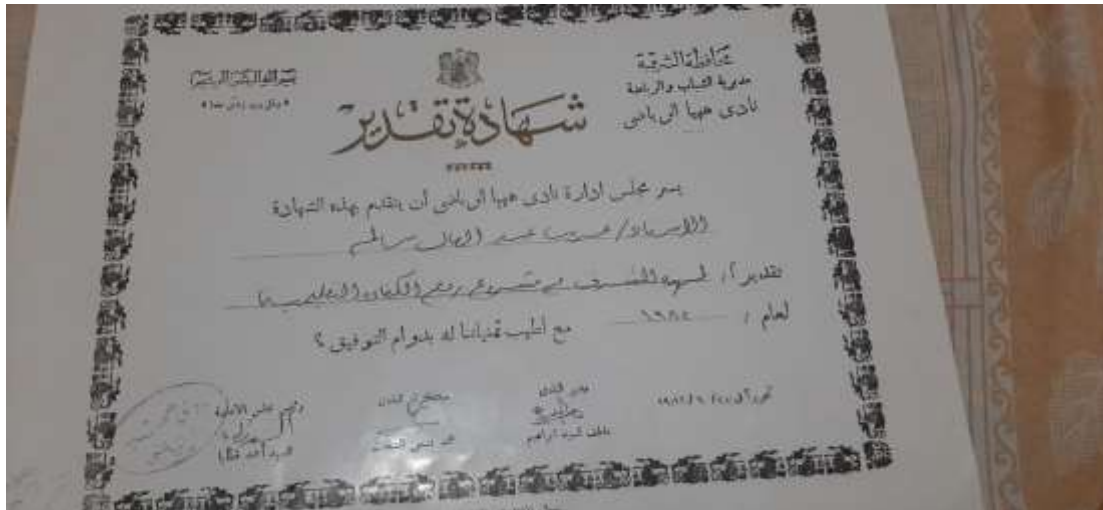 محافظة الشرقية
مديرية الشباب والرياضة
نادى ههيا الرياضى
بسم الله الرحمن الرحيم
" وقل رب زدنى علما "
شهادة تقدير
يسر مجلس ادارة نادى ههيا الرياضى أن يتقدم بهذه الشهادة
للاستاذ / عبد العال سالم
تقديراً / لجهده المشرف فى مشروع رفع الكفاءة التعليمية
لعام / ١٩٨٤ مع أطيب تمنياتنا له بدوام التوفيق ؟
تحريراً فى
مدير النادى
سكرتير النادى
رئيس مجلس الادارة
السيد أحمد